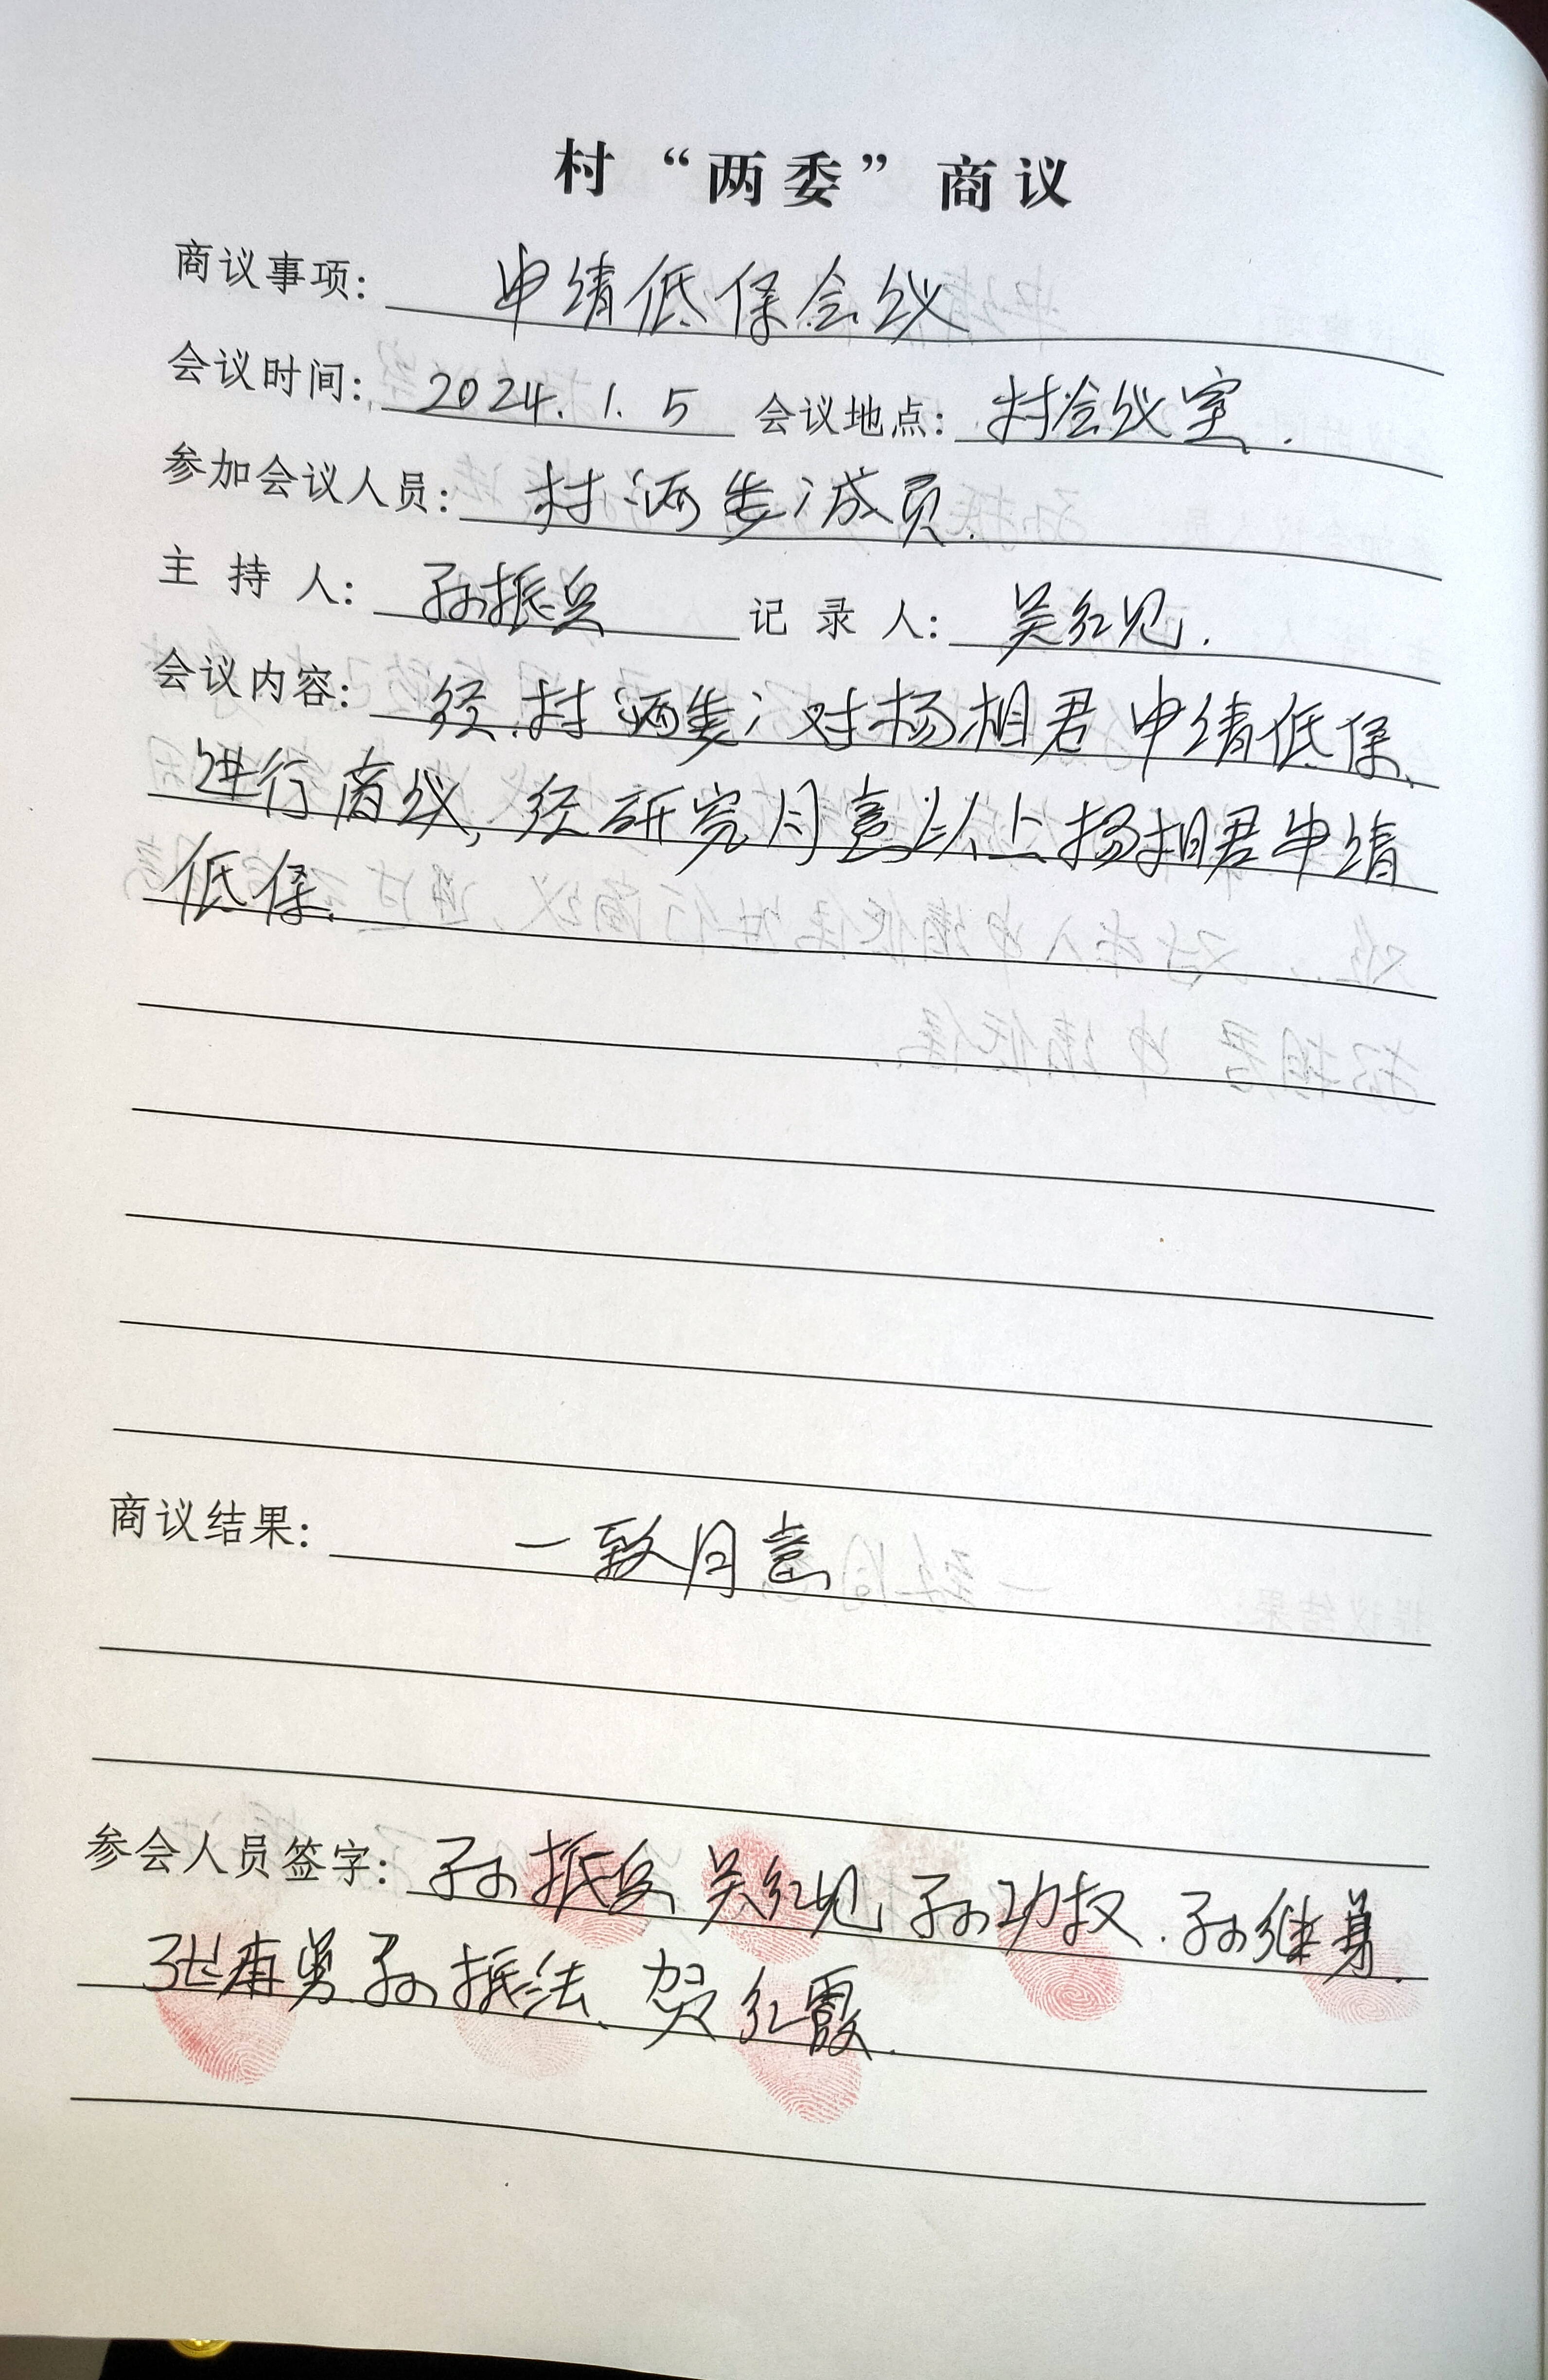 村“两委”商议
商议事项: 申请低保会议
会议时间: 2024.1.5 会议地点: 村会议室.
参加会议人员: 村“两委”成员.
主持人: 孙振兵 记录人: 吴红见.
会议内容: 经村“两委”对杨相君申请低保
进行商议, 经研究同意以上杨相君申请
低保.
商议结果: 一致同意
参会人员签字: 孙振兵 吴红见 孙功权. 孙继
孙振法、贺红霞.